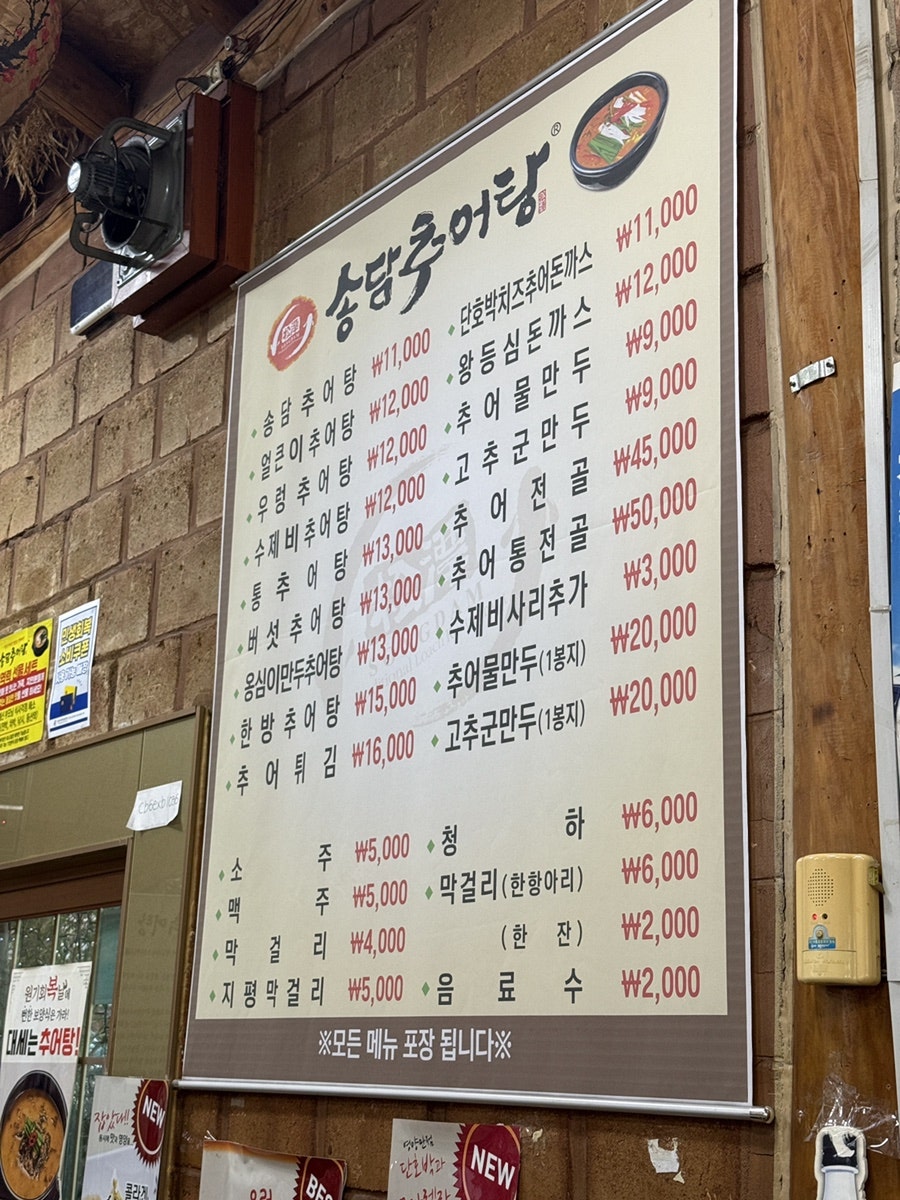 송담추어탕®
송담추어탕 ₩11,000
얼큰이추어탕 ₩12,000
우렁추어탕 ₩12,000
수제비추어탕 ₩12,000
통추어탕 ₩13,000
버섯추어탕 ₩13,000
옹심이만두추어탕 ₩13,000
한방추어탕 ₩15,000
추어튀김 ₩16,000
단호박치즈추어돈까스 ₩11,000
왕등심돈까스 ₩12,000
추어물만두 ₩9,000
고추군만두 ₩9,000
추어전골 ₩45,000
추어통전골 ₩50,000
수제비사리추가 ₩3,000
추어물만두(1봉지) ₩20,000
고추군만두(1봉지) ₩20,000
소주 ₩5,000
맥주 ₩5,000
막걸리 ₩4,000
지평막걸리 ₩5,000
청하 ₩6,000
막걸리(한항아리) ₩6,000
(한 잔) ₩2,000
음료수 ₩2,000
※모든 메뉴 포장 됩니다※
민생회복
소비쿠폰
원기회복날에
뻔한 보양식은 가라!
대세는 추어탕!
잡았다!!
NEW
콜라겐
NEW
단호박과